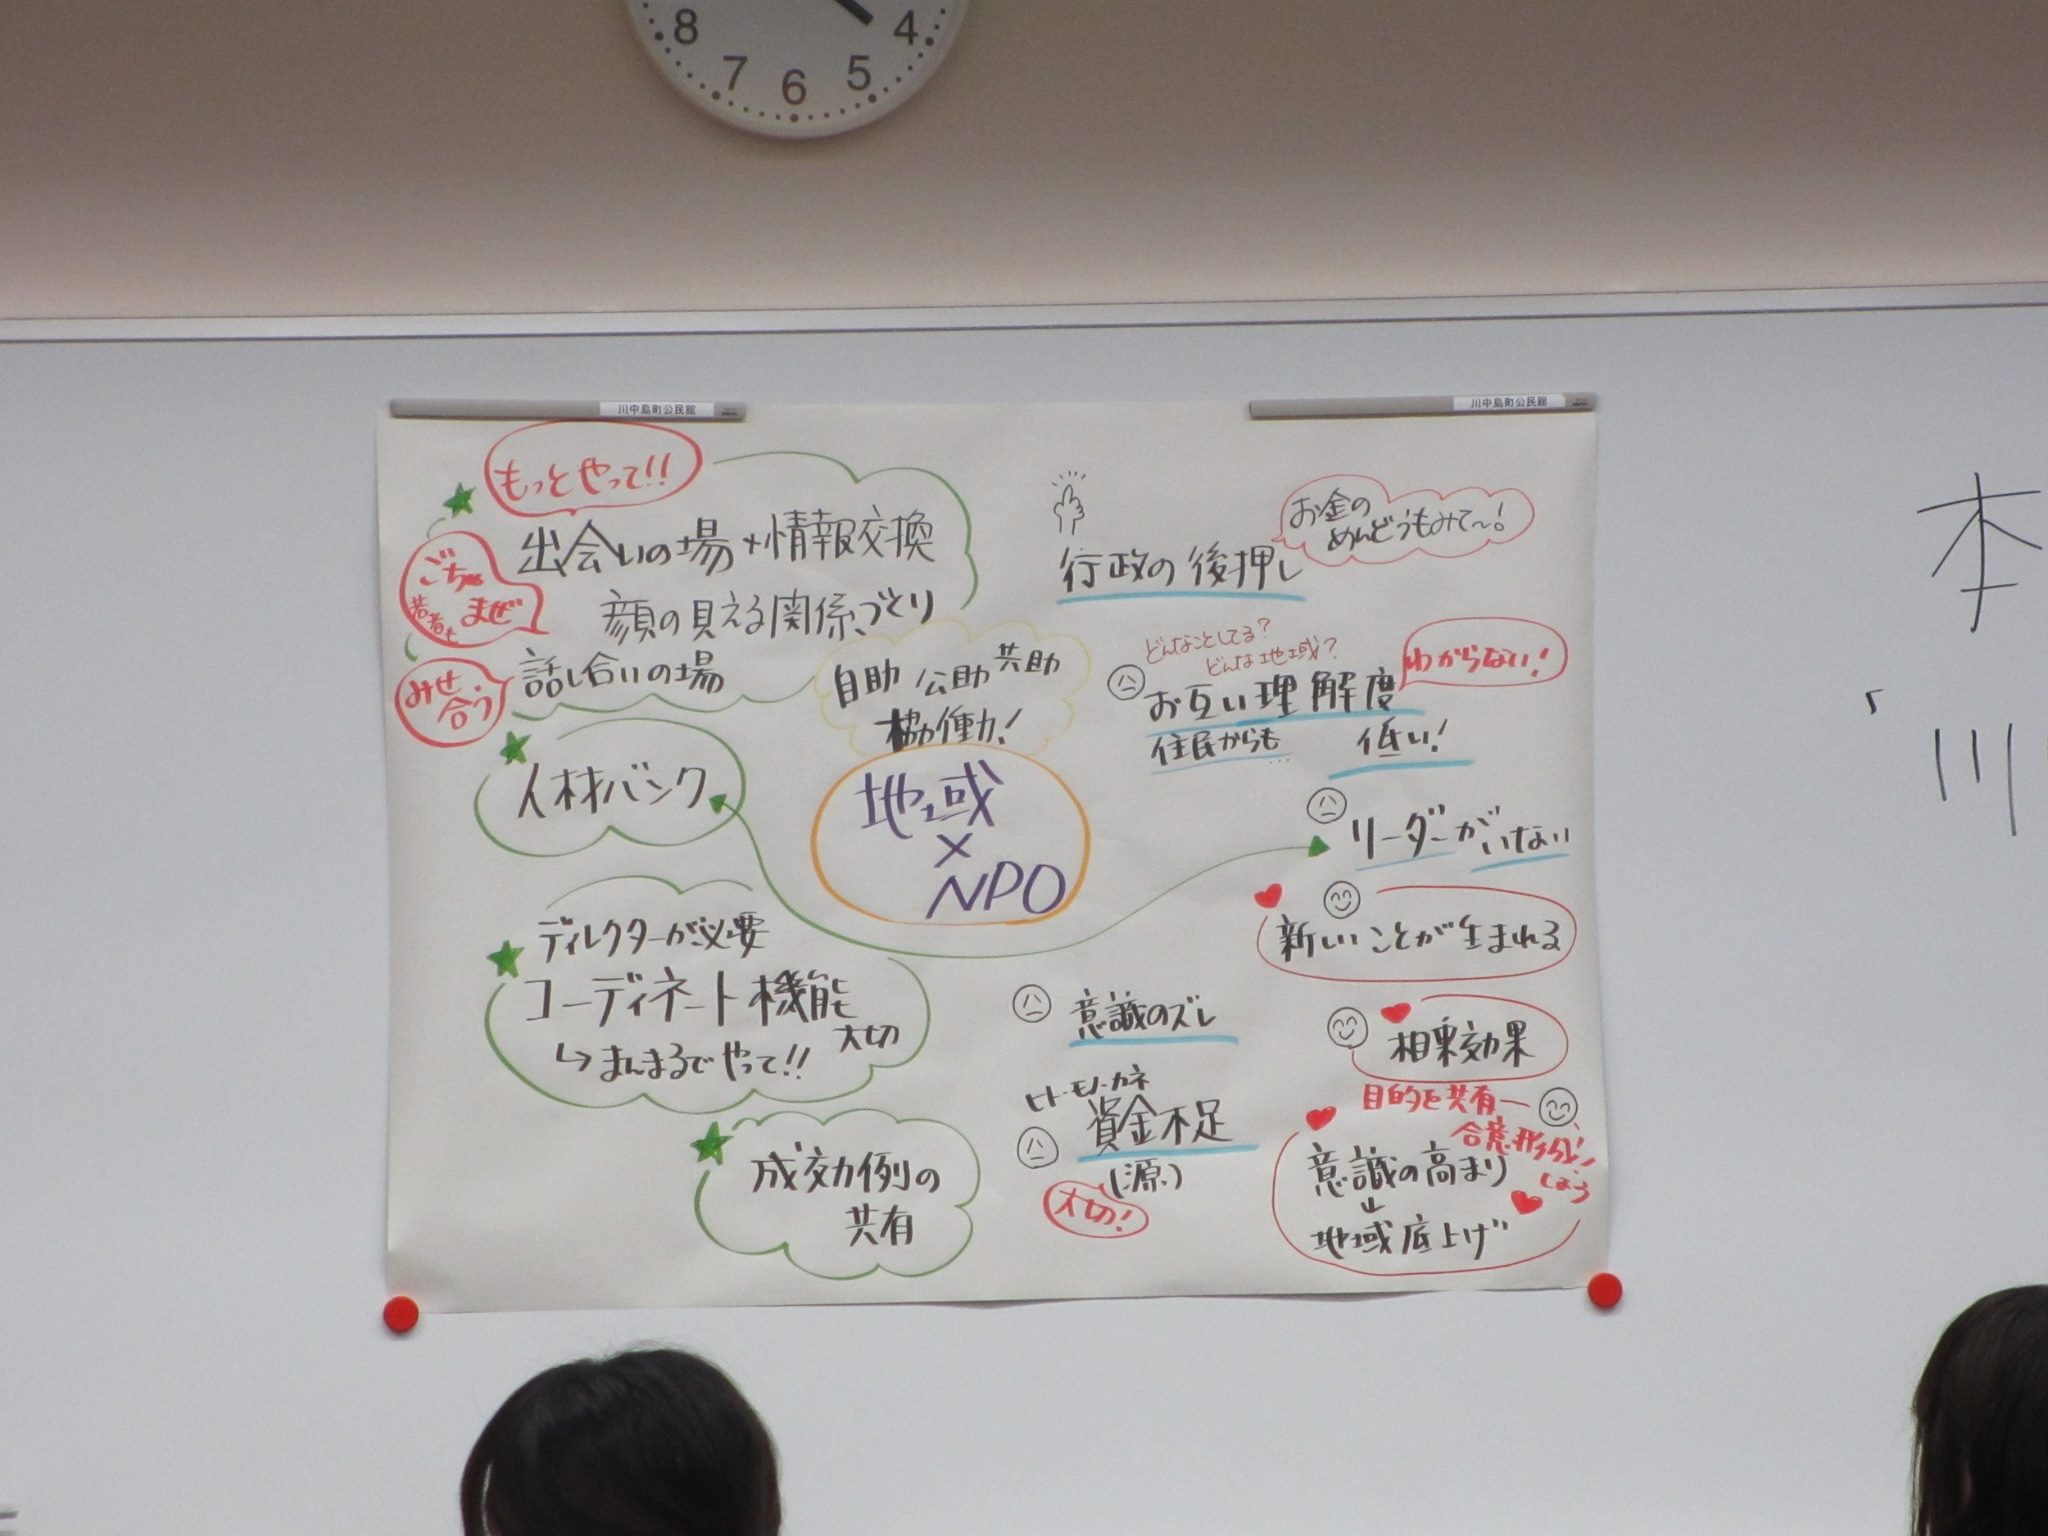 8 7 6 5 4
川中島町公民館
川中島町公民館
もっとやって!!
出会いの場+情報交換
ごちゃまぜ
若者も
顔の見える関係づくり
みせ合う
話し合いの場
自助 公助 共助
協働!
人材バンク
地域
×
NPO
ディレクターが必要
コーディネート機能
大切
↳まんまるでやって!!
成功例の
共有
お金の
めんどうもみて〜!
行政の後押し
どんなことしてる?
どんな地域?
わからない!
お互い理解度
住民からも… 低い!
リーダーがいない
新しいことが生まれる
意識のズレ
相乗効果
ヒト・モノ・カネ
資金不足
(源)
大切!
目的を共有
合意形成!
しよう
意識の高まり
地域底上げ
本
「
川